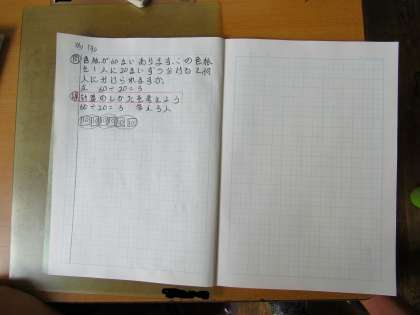 問 色紙が60まいあります。この色紙
を1人に20まいずつ分けると何
人に分けられますか。
式 60÷20=3
計算のしかたを考えよう
60÷20=3 答え3人
10 10 10 10 10 10